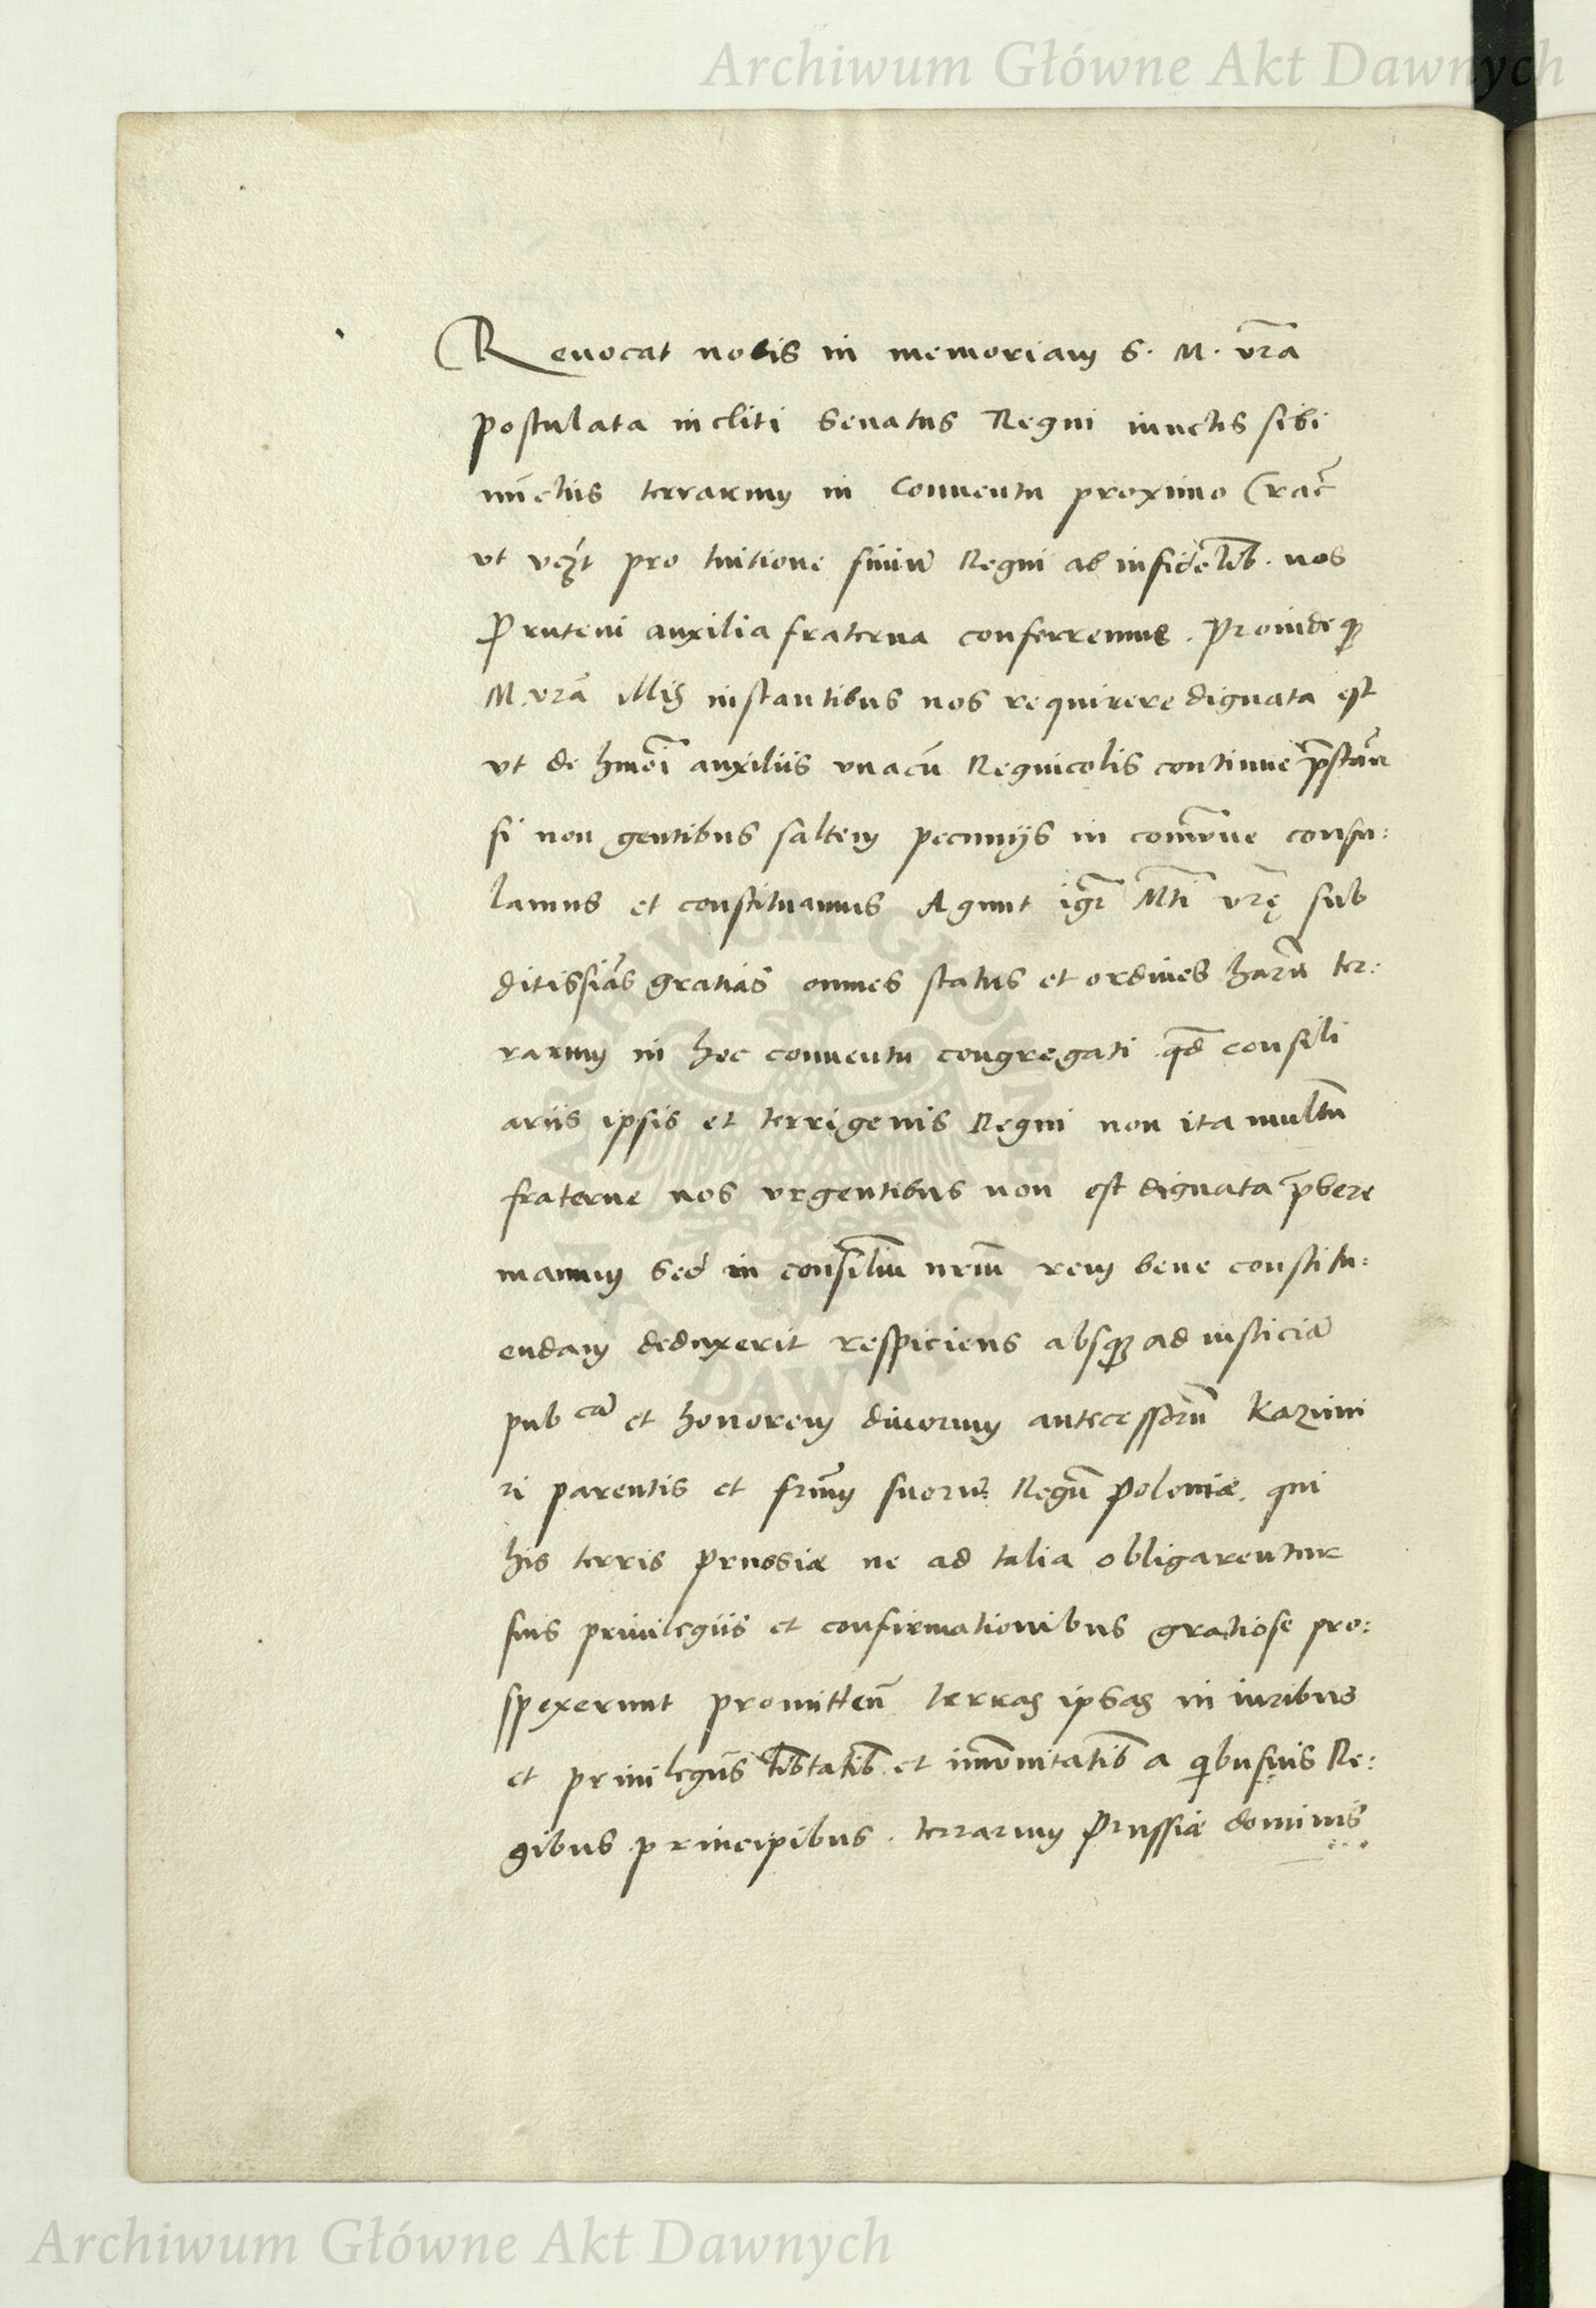 Archiwum Główne Akt Dawnych
Reuocat nobis in memoriam S. M. vr̃a
postulata incliti Senatus Regni iunctis sibi
nũctiis terrarum in Conuentu proximo Crac̃
vt pro tuitione finiũ Regni ab infidelib̃. nos
Pruteni auxilia fraterna conferremus. Proindeqꝫ
M. vr̃a illis instantibus nos requirere dignata est
vt de hm̃oi auxiliis vnacũ Regnicolis continue p̃stañ
si non gentibus saltem pecunijs in com̃une consu:
lamus et constituamus Agunt igr̃ Mt̃i vr̃ę sub
ditissiãs gratias omnes status et ordines harũ ter:
rarum in hoc conuentu congregati qd̃ consili
ariis ipsis et terrigenis Regni non ita multũ
fraterne nos vrgentibus non est dignata p̃bere
manum Sed in consiliũ nr̃um rem bene constitu:
endam deduxerit respiciens absqꝫ ad iusticiã
pubcã et honorem diuorum antecessorũ Kazimi
ri parentis et fr̃um suorũ Regũ Poloniæ. qui
his terris Prussiæ ne ad talia obligarentur
suis priuilegiis et confirmationibus gratiose pro:
spexerunt promitteñ terras ipsas in iuribus
et priuilegiis lib̃tatib̃. et im̃unitatib̃ a qͥbusuis Re:
gibus principibus. terrarum Prussiæ dominis
ARCHIWUM GŁÓWNE AKT DAWNYCH
Archiwum Główne Akt Dawnych